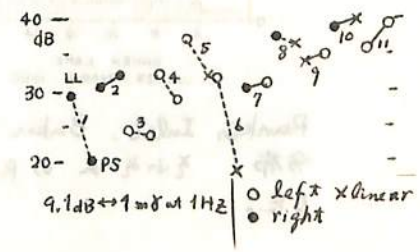 40
dB
30
20
LL
PS
1
2
3
4
5
6
7
8
9
10
11
9.1dB↔1mγ at 1Hz
○ left × linear
● right